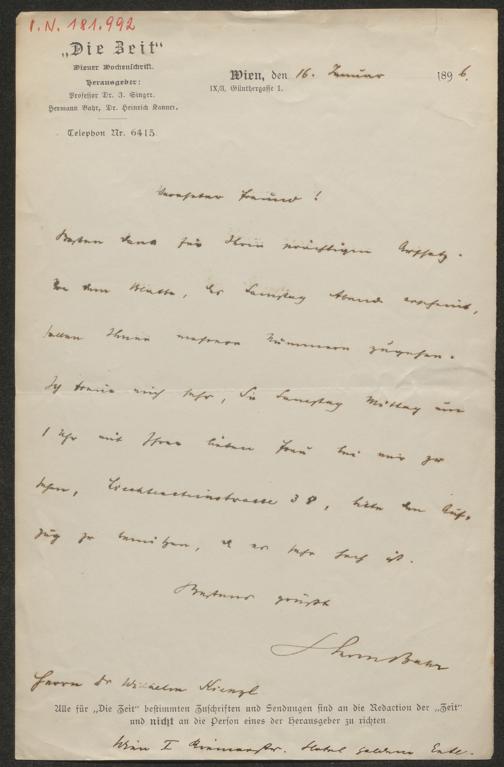 I. N. 181.992
„Die Zeit“
Wiener Wochenschrift.
Herausgeber:
Professor Dr. J. Singer,
Hermann Bahr, Dr. Heinrich Kanner.
Telephon Nr. 6415.
Wien, den 16. Januar 1896.
IX/3, Günthergasse 1.
Verehrter Freund!
Besten Dank für Ihren prächtigen Aufsatz.
Von dem Blatte, das Samstag Abend erscheint,
sollen Ihnen mehrere Nummern zugehen.
Ich freue mich sehr, Sie Samstag Mittag um
1 Uhr mit Ihrer lieben Frau bei mir zu
sehen, Liechtensteinstrasse 38, bitte den Auf-
zug zu benützen, da es sehr hoch ist.
Bestens grüßt
HermBahr
Herrn Dr Wilhelm Kienzl
Alle für „Die Zeit“ bestimmten Zuschriften und Sendungen sind an die Redaction der „Zeit“
und nicht an die Person eines der Herausgeber zu richten.
Wien I Riemerstr. Hotel goldene Ente.